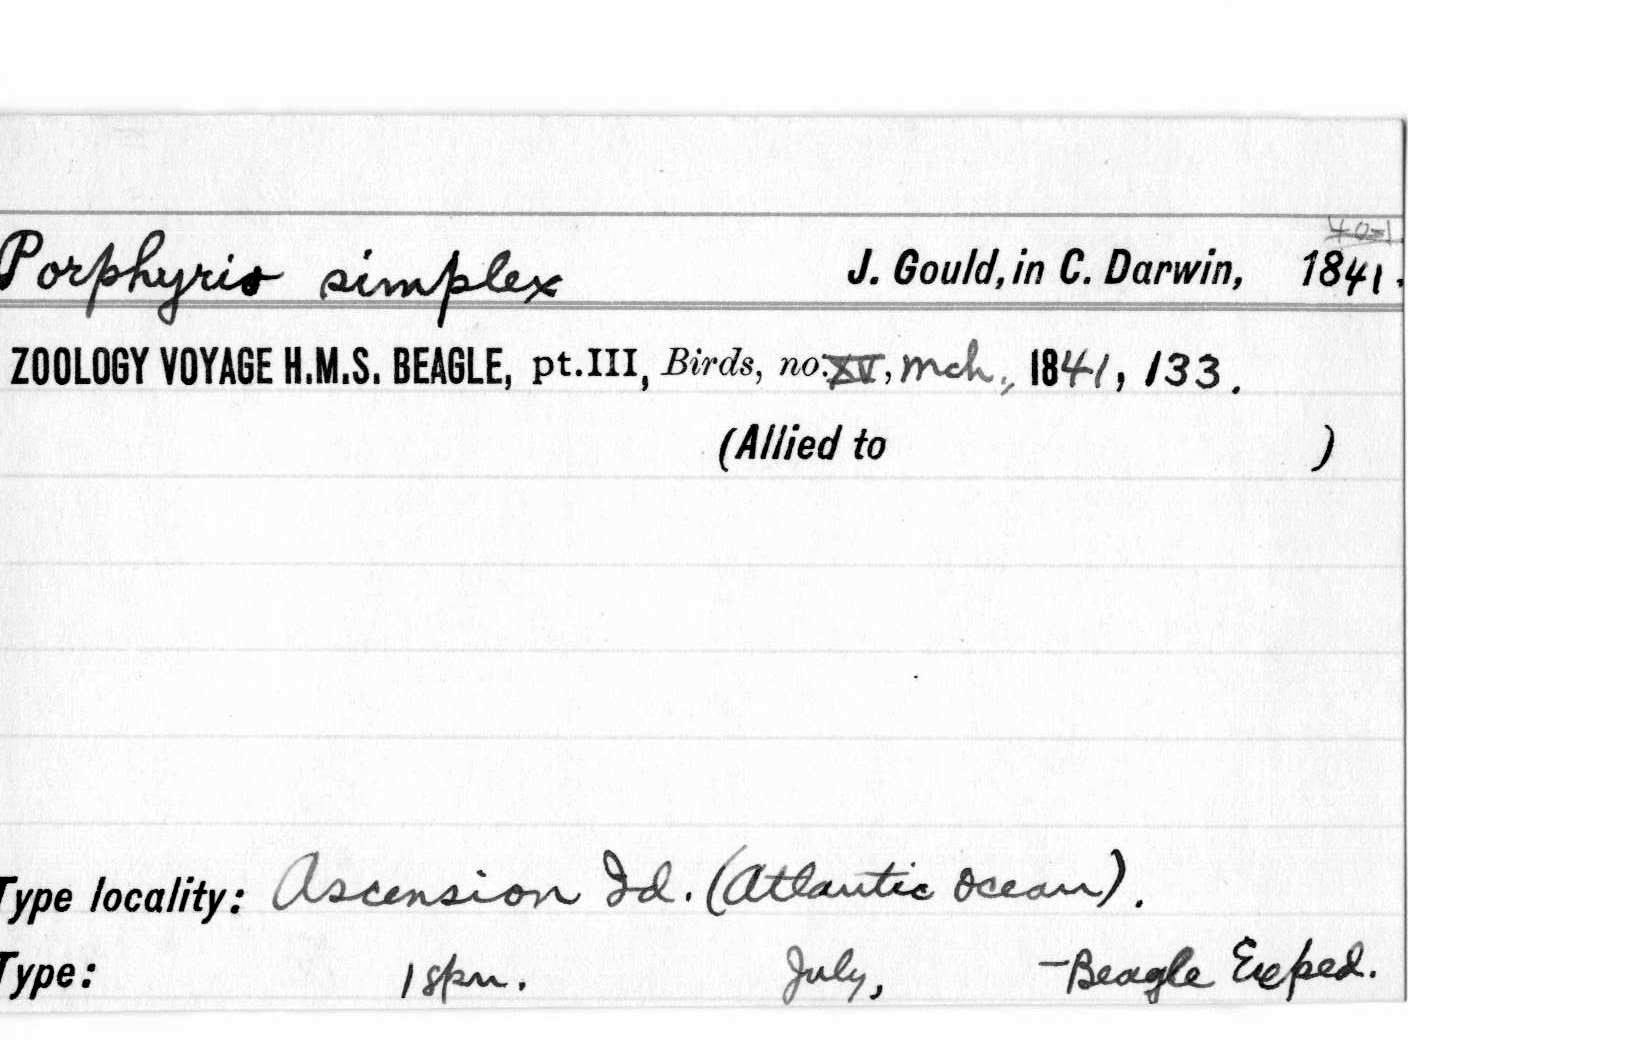 40=1
Porphyrio simplex J. Gould, in C. Darwin, 1841.
ZOOLOGY VOYAGE H.M.S. BEAGLE, pt.III, Birds, no.XV, mch., 1841, 133.
(Allied to )
Type locality: Ascension Id. (Atlantic Ocean).
Type: 1 spn. July, —Beagle Exped.